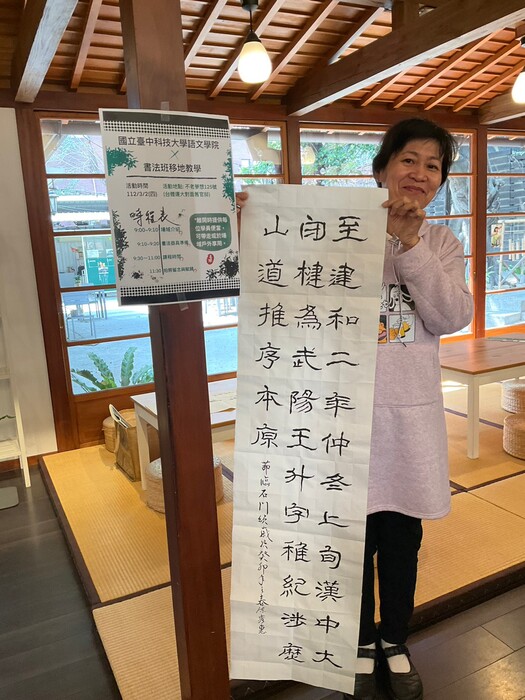 國立臺中科技大學語文學院
×
書法班移地教學
活動時間
112/3/2(四)
活動地點: 不老夢想125號
時程表
9:00~9:10
9:10~9:20
9:20~11:00 課程時間
11:30
至建和二年仲冬上旬漢中大
守犍為武陽王升字稚紀涉歷
山道推序本原
節臨石門頌